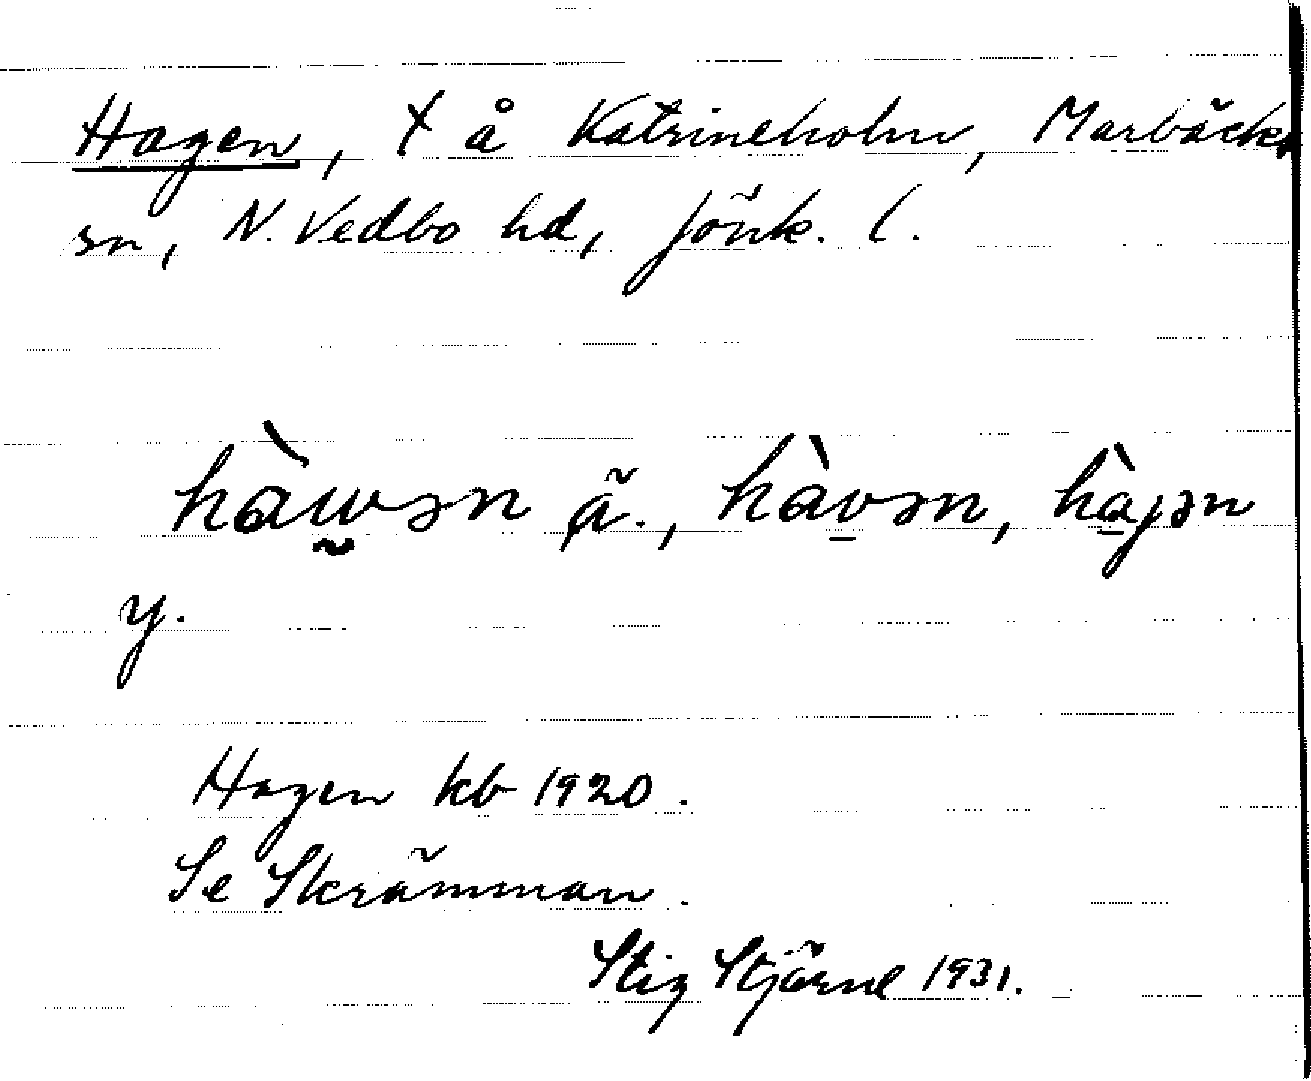 Hagen, t å Katrineholm, Marbäcks
sn, N. Vedbo hd, Jönk. l.
hàwən ä., hàvən, hàjən
y.
Hagen kb 1920.
Se Skrämman.
Stig Stjärne 1931.